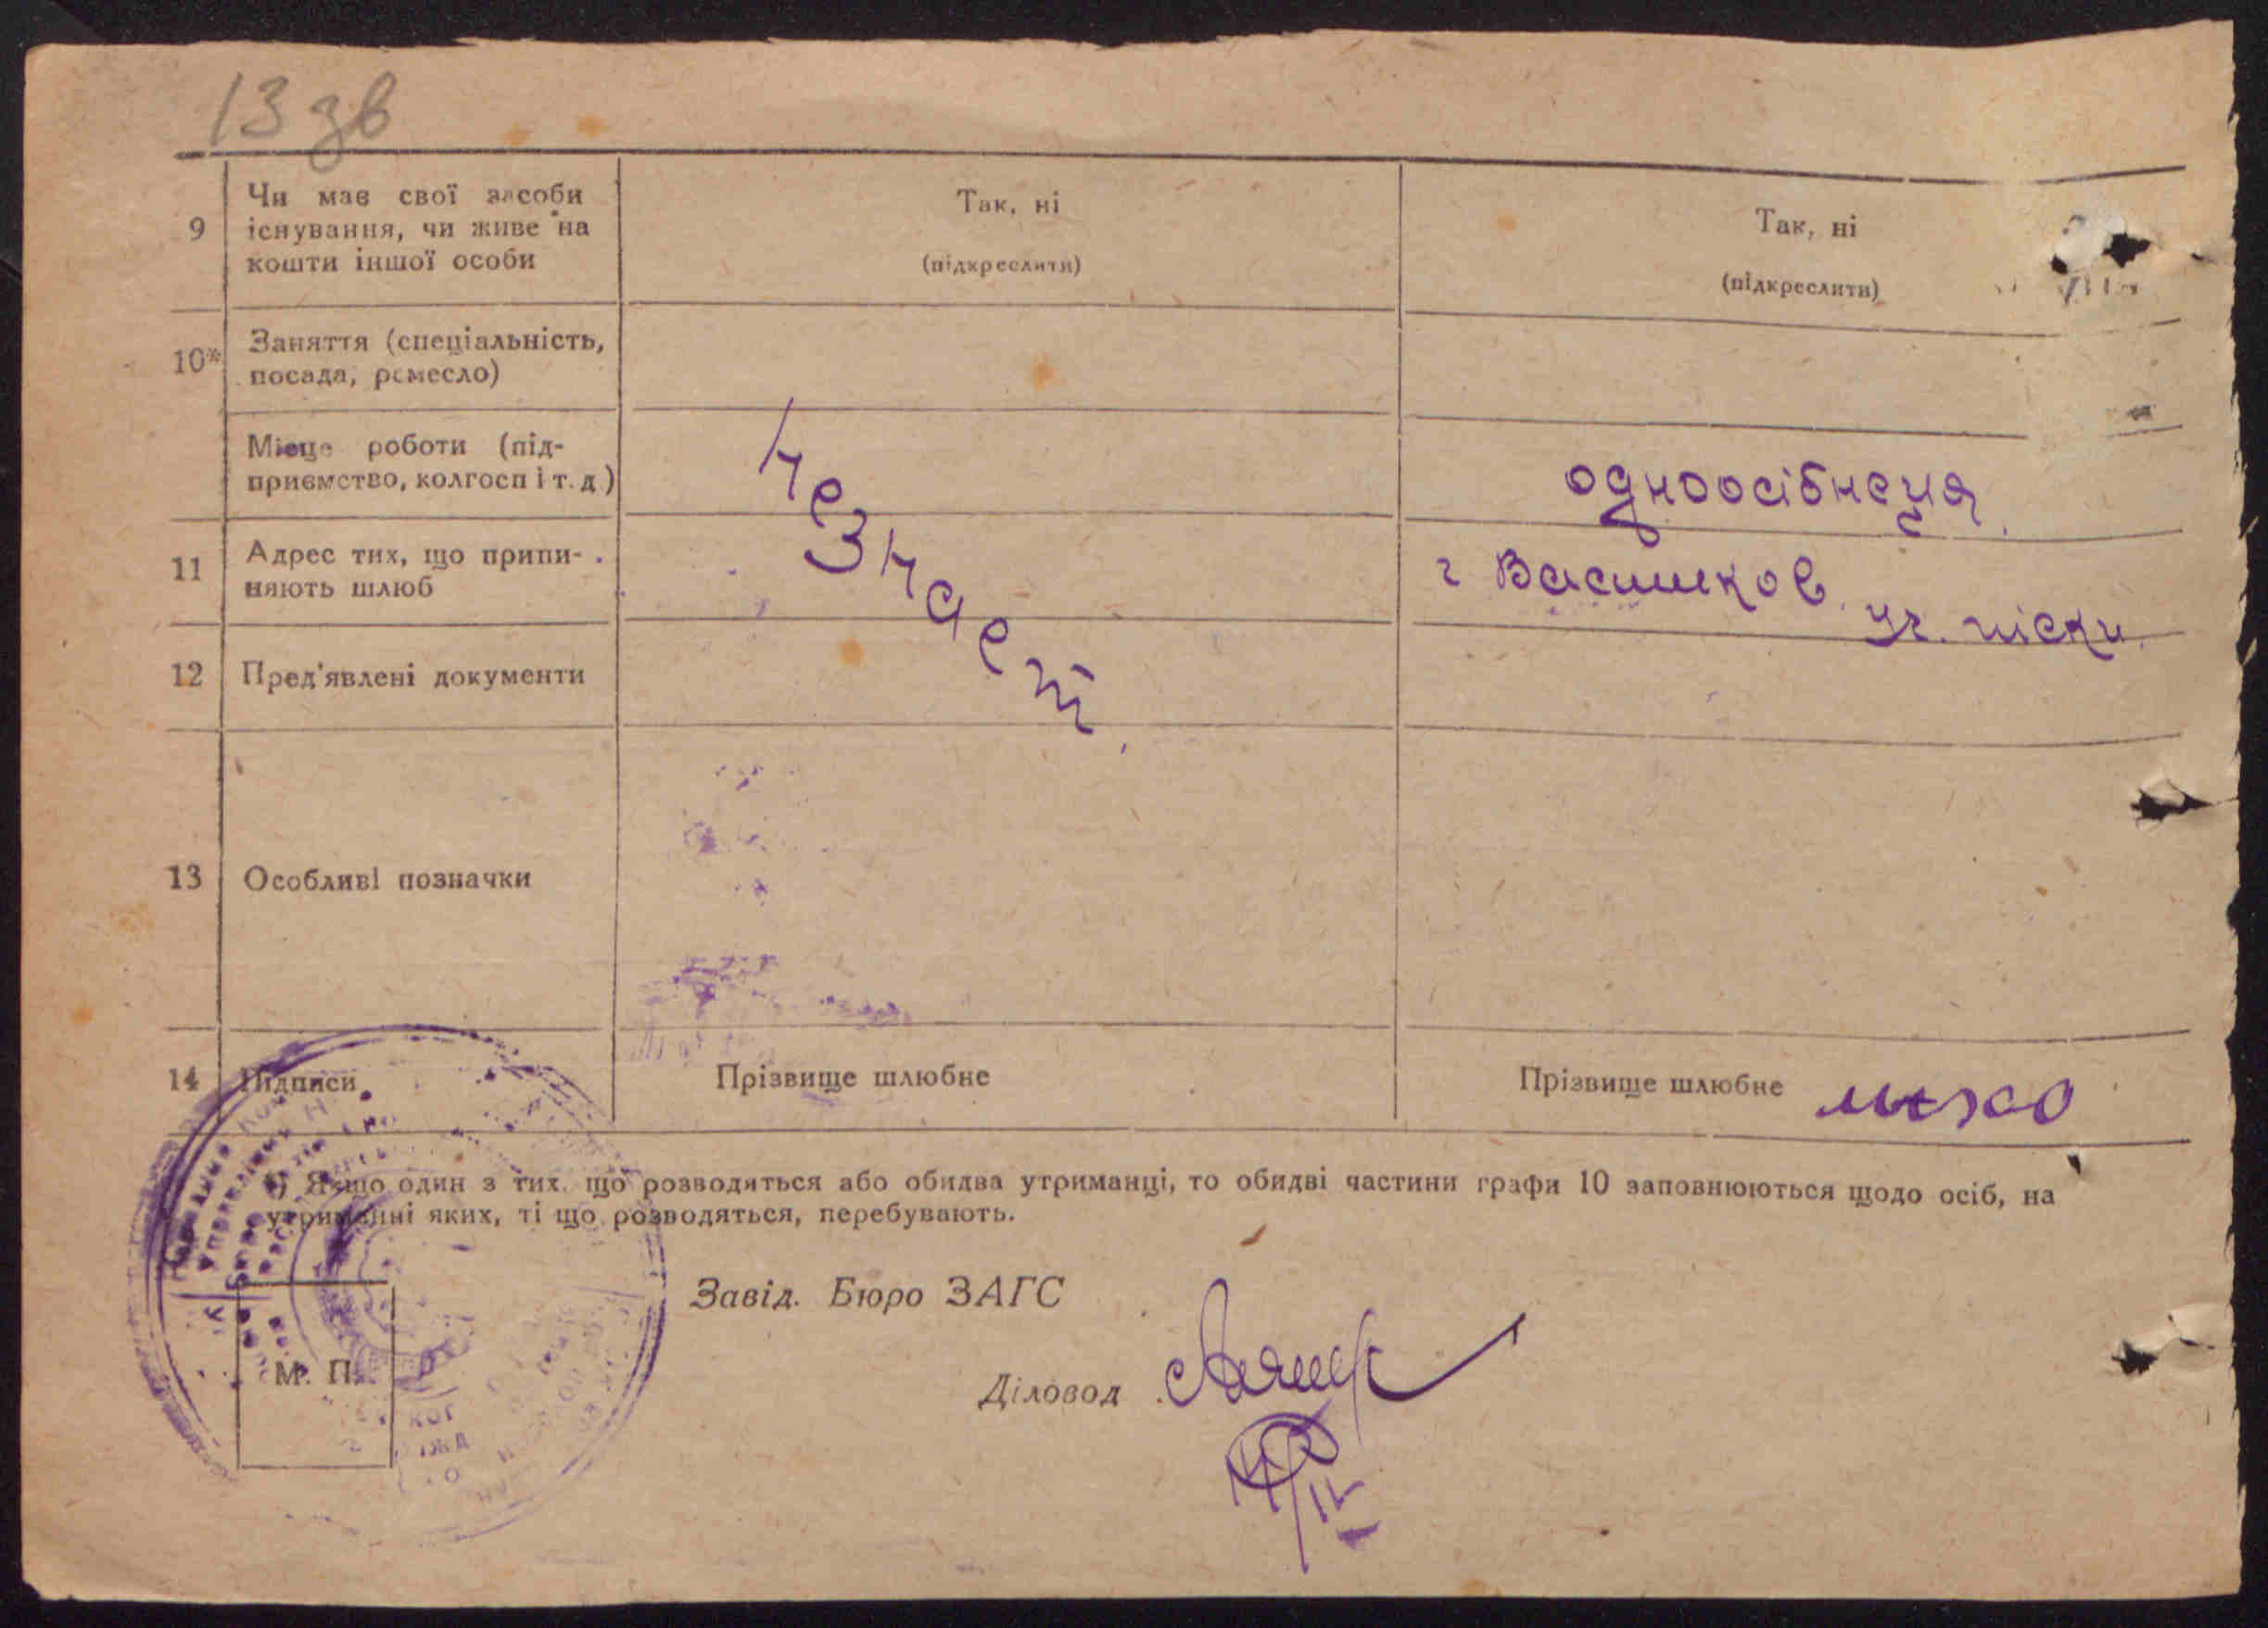 13 зв
9
Чи має свої засоби
існування, чи живе на
кошти іншої особи
Так, ні
(підкреслити)
Так, ні
(підкреслити)
10*
Заняття (спеціальність,
посада, ремесло)
Місце роботи (під-
приємство, колгосп і т. д.)
одноосібнеця
незнает.
11
Адрес тих, що припи-
няють шлюб
г Васильков
ул. піски.
12
Пред'явлені документи
13
Особливі позначки
14
Підписи
Прізвище шлюбне
Прізвище шлюбне
*) Якщо один з тих, що розводяться або обидва утриманці, то обидві частини графи 10 заповнюються щодо осіб, на
утриманні яких, ті що розводяться, перебувають.
Завід. Бюро ЗАГС
Діловод
М. П.